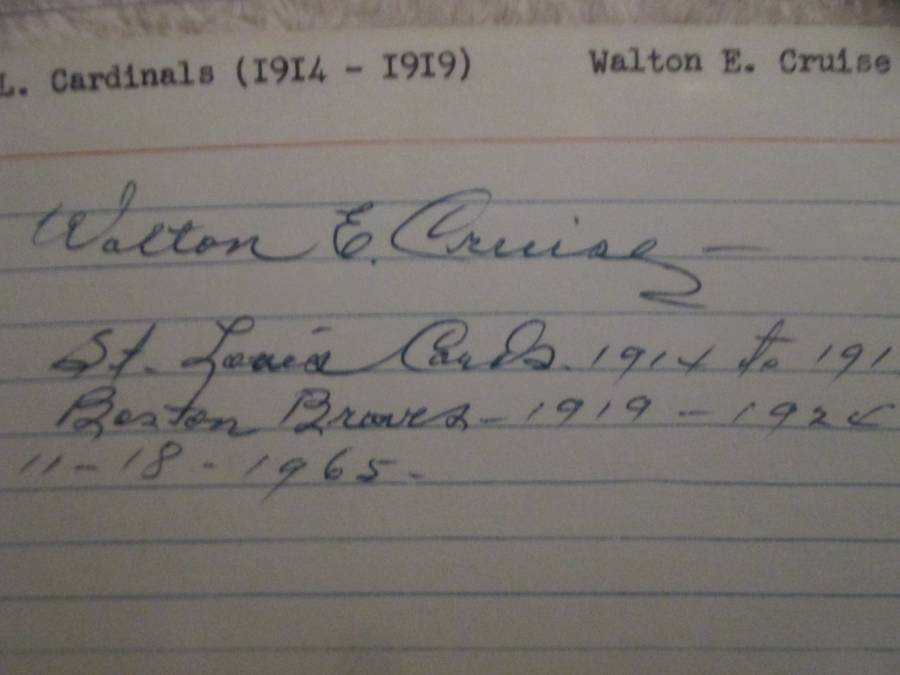 L. Cardinals (1914 - 1919) Walton E. Cruise
Walton E. Cruise
St. Louis Cards. 1914 to 191
Boston Braves - 1919 - 192
11 - 18 - 1965.